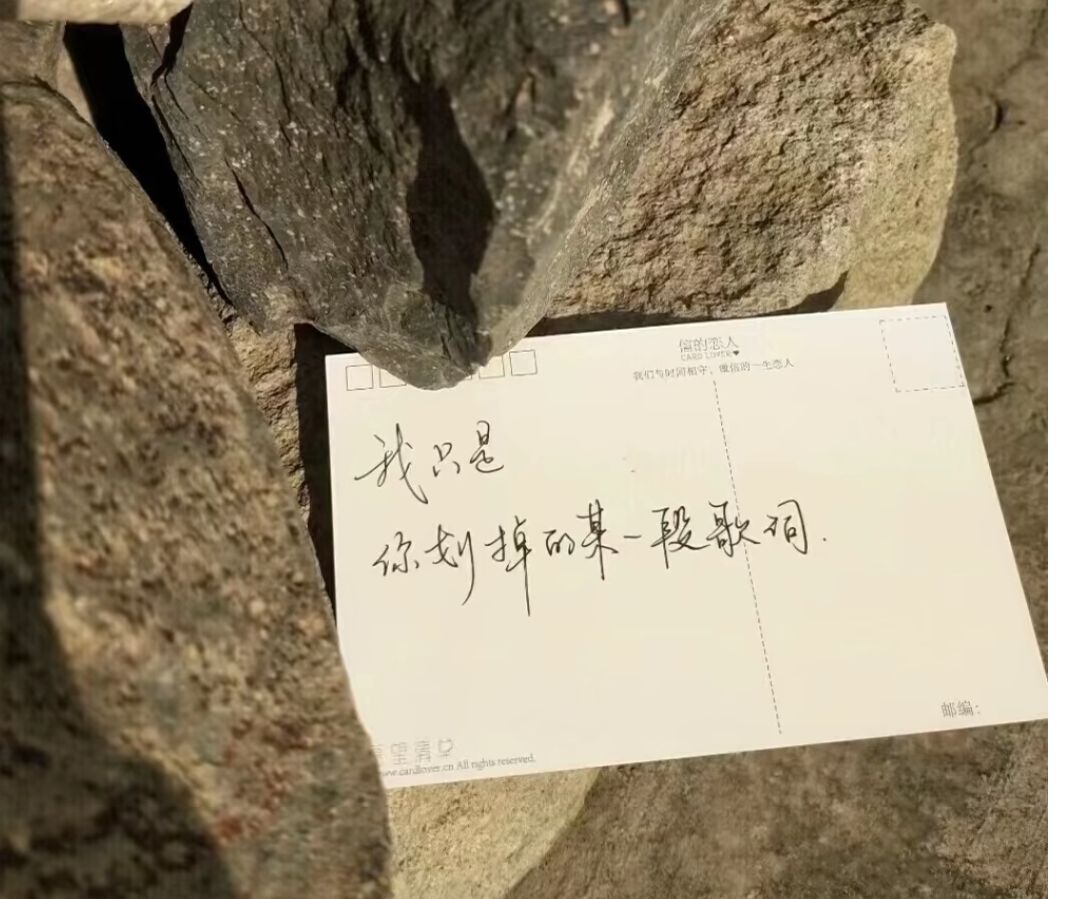 信的恋人
CARD LOVER♥
我们与时间相守，做信的一生恋人
我只是
你划掉的某一段歌词.
邮编：
www.cardlover.cn All rights reserved.